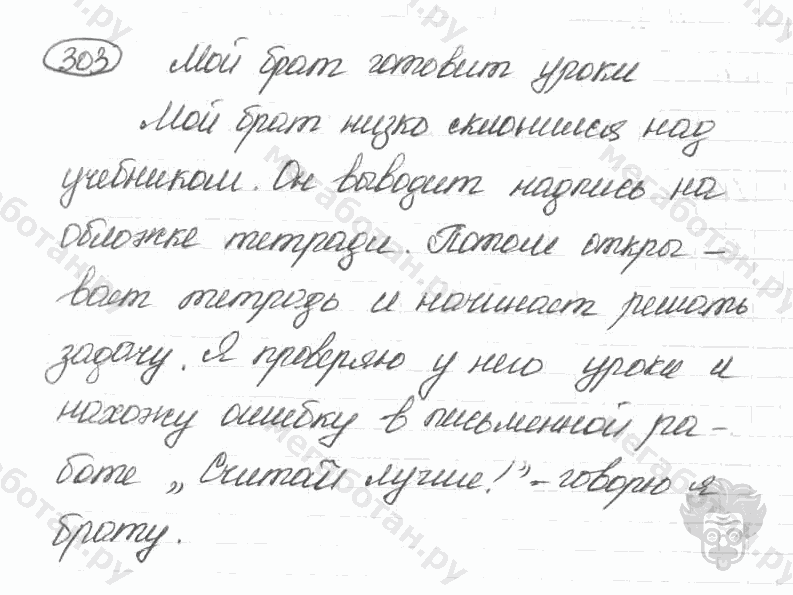 303 Мой брат готовит уроки
Мой брат низко склонился над
учебником. Он выводит надпись на
обложке тетради. Потом откры –
вает тетрадь и начинает решать
задачу. Я проверяю у него уроки и
нахожу ошибку в письменной ра –
боте „Считай лучше!” – говорю я
брату.
мегаботан.ру